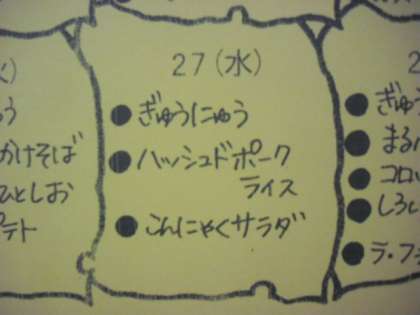 27(水)
●ぎゅうにゅう
●ハッシュドポーク
ライス
●こんにゃくサラダ
かけそば
ひとしお
ポテト
●ぎゅう
●まる
●コロッ
●しろい
●ラ・フ